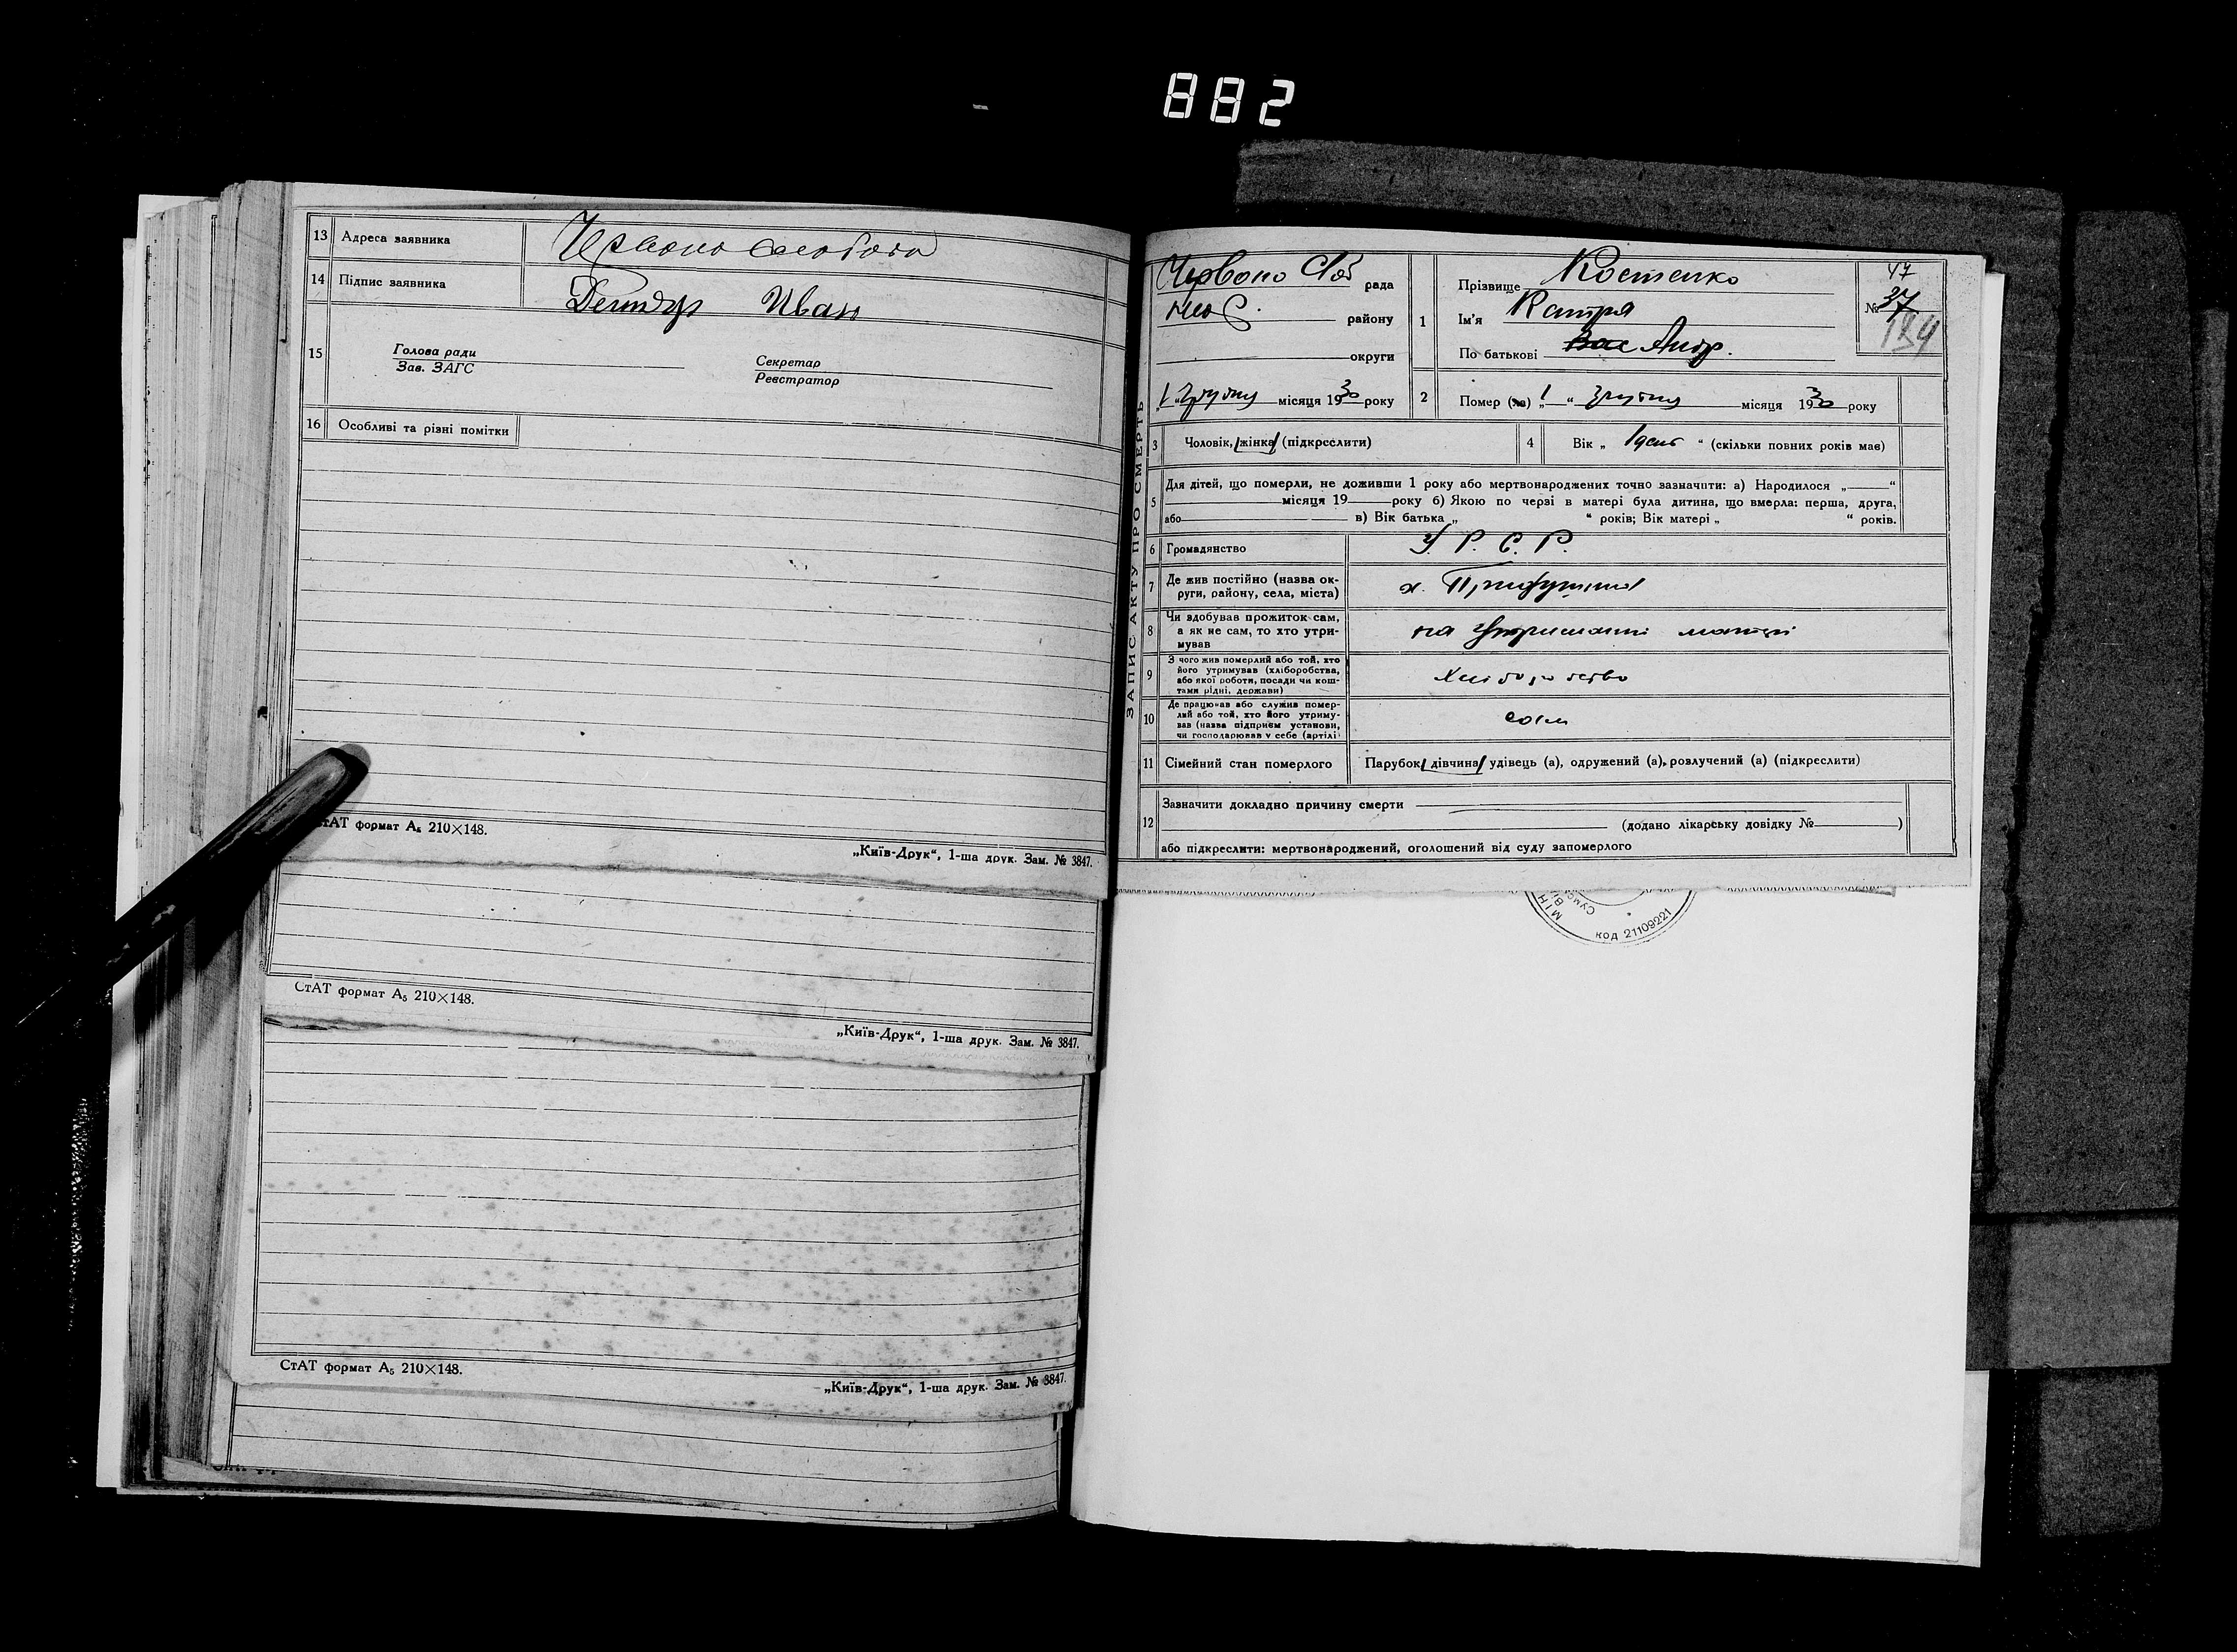 882
13 Адреса заявника Червона слобода
14 Підпис заявника Иван
15 Голова ради
Зав. ЗАГС
Секретар
Реєстратор
16 Особливі та різні помітки
СтАТ формат А₅ 210×148.
„Київ-Друк“, 1-ша друк. Зам. № 3847.
СтАТ формат А₅ 210×148.
„Київ-Друк“, 1-ша друк. Зам. № 3847.
СтАТ формат А₅ 210×148.
„Київ-Друк“, 1-ша друк. Зам. № 3847.
ЗАПИС АКТУ ПРО СМЕРТЬ
Червоно Слоб рада
району
округи
„1“ грудня місяця 1930 року
1 Прізвище Костенко
Ім'я Катря
По батькові Андр.
47
№ 37
184
2 Помер (ла) „1“ грудня місяця 1930 року
3 Чоловік, жінка (підкреслити)
4 Вік „1 день“ (скільки повних років мав)
5 Для дітей, що померли, не доживши 1 року або мертвонароджених точно зазначити: а) Народилося „ “
місяця 19 року б) Якою по черзі в матері була дитина, що вмерла: перша, друга,
або в) Вік батька „ “ років; Вік матері „ “ років.
6 Громадянство У. Р. С. Р.
7 Де жив постійно (назва ок-
руги, району, села, міста) х.
8 Чи здобував прожиток сам,
а як не сам, то хто утри-
мував на утриманні матері
9 З чого жив померлий або той, хто
його утримував (хліборобства,
або якої роботи, посади чи кош-
тами рідні, держави) хліборобство
10 Де працював або служив помер-
лий або той, хто його утриму-
вав (назва підприєм установи,
чи господарював у себе (артілі
11 Сімейний стан померлого Парубок, дівчина, удівець (а), одружений (а), розлучений (а) (підкреслити)
12 Зазначити докладно причину смерти
(додано лікарську довідку № )
або підкреслити: мертвонароджений, оголошений від суду запомерлого
код 21109221